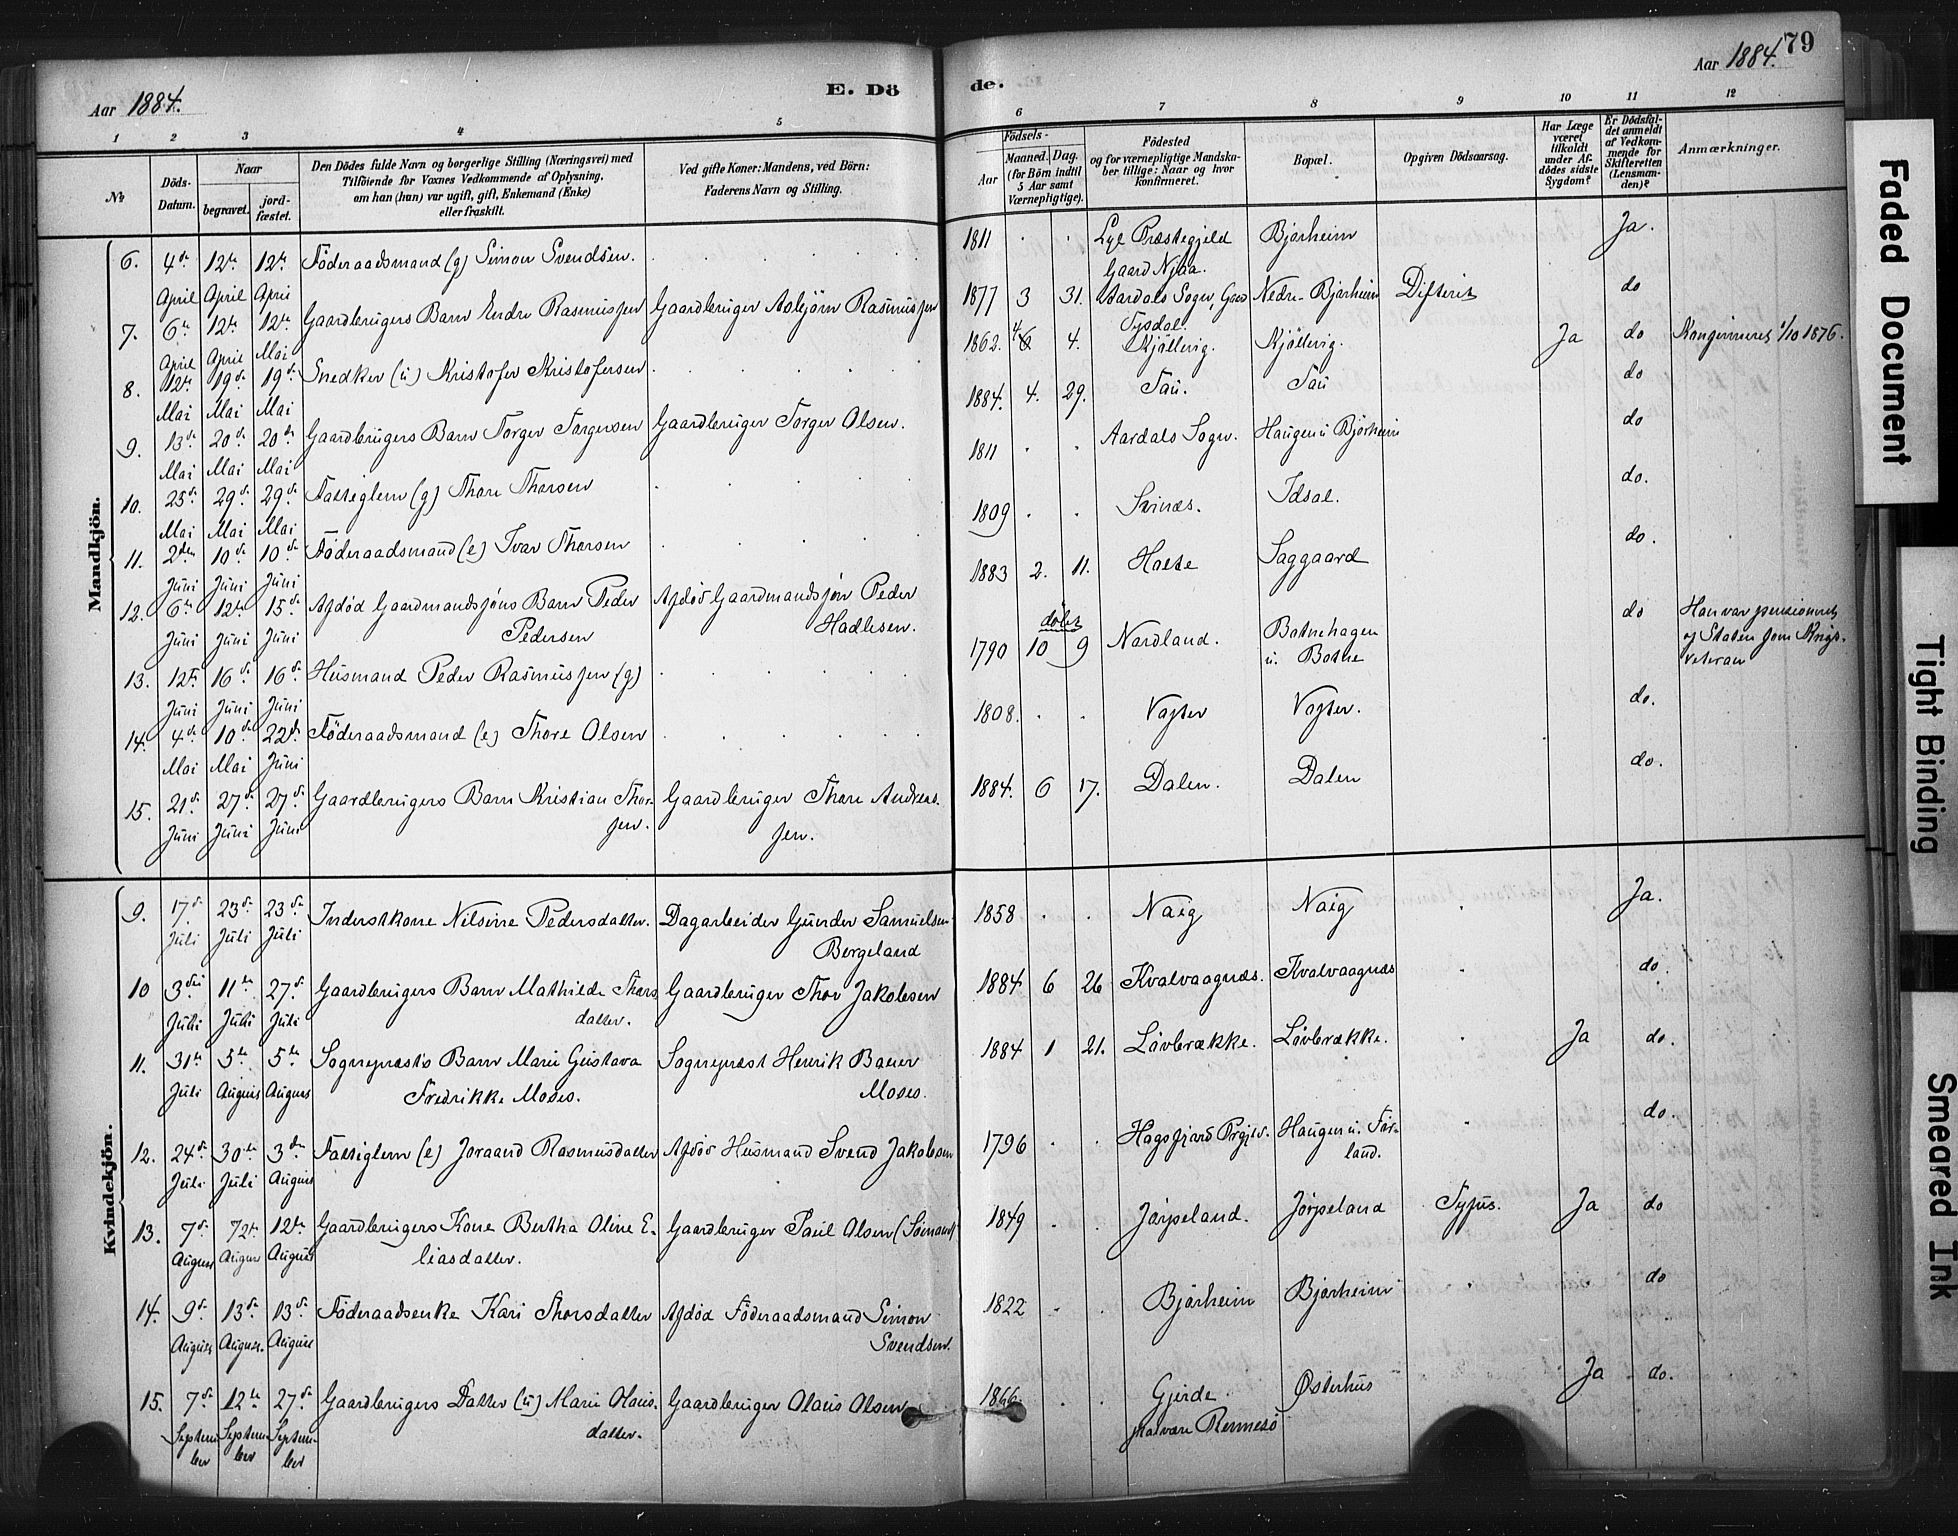 Aar 1884.
E. Dö
de.
Aar 1884.
79
1 2 3 4 5 6 7 8 9 10 11 12
№
Döds-
Datum.
Naar
begravet.
jord-
fæstet.
Den Dödes fulde Navn og borgerlige Stilling (Næringsvei) med
Tilföiende for Voxnes Vedkommende af Oplysning,
om han (hun) var ugift, gift, Enkemand (Enke)
eller fraskilt.
Ved gifte Koner: Mandens, ved Börn:
Faderens Navn og Stilling.
Födsels-
Aar
Maaned. Dag.
(for Börn indtil
5 Aar samt
Værnepligtige).
Födested
og for værnepligtige Mandska-
ber tillige: Naar og hvor
konfirmeret.
Bopæl.
Opgiven Dödsaarsag.
Har Læge
været
tilkaldt
under Af-
dödes sidste
Sygdom?
Er Dödsfal-
det anmeldt
af Vedkom-
mende for
Skifteretten
(Lensman-
den)?
Anmærkninger.
Mandkjön.
6. 4de April 12te April 12te April Föderaadsmand (g) Simon Svendsen. 1811 Lye Præstegjeld Gaard Njaa. Bjørheim Ja.
7. 6te April 12te April 12te Mai Gaardbrugers Barn Endre Rasmussen Gaardbruger Asbjørn Rasmussen 1877 3 31. Aardals Sogn, Tysdal. Nedre-Bjørheim Difterit do
8. 12te Mai 19de Mai 19de Mai Snedker (u) Kristofer Kristofersen 1862. 4. Kjöllevig. Kjöllevig. Ja do Konfirmeret 1/10 1876.
9. 13de Mai 20de Mai 20de Mai Gaardbrugers Barn Torger Torgersen Gaardbruger Torger Olsen. 1884. 4. 29. Tau. Tau do
10. 25de Mai 29de Mai 29de Mai Fattiglem (g) Thore Thorsen 1811 Aardals Sogn. Haugen u Bjørheim do
11. 2den Juni 10de Juni 10de Juni Föderaadsmand (e) Ivar Thorsen 1809 Svinæs. Idsal. do.
12. 6te Juni 12te Juni 15de Juni Afdød Gaardmandssøns Barn Peder Pedersen Afdød Gaardmandssøn Peder Hadlesen. 1883 2. 11. Holte Saggaard do.
13. 12te Juni 16de Juni 16de Juni Husmand Peder Rasmussen (g) 1790 10 9 døbt Nordland. Botnehagen u. Botne do Han var pensioneret af Staten som Krigs-veteran
14. 4de Mai 10de Mai 22de Juni Föderaadsmand (e) Thore Olsen 1808. Vagter Vagter. do.
15. 21de Juni 27de Juni 27de Juni Gaardbrugers Barn Kristian Thor-sen. Gaardbruger Thore Andreas-sen. 1884. 6 17. Dalen. Dalen do.
Kvindekjön.
9. 17de Juli 23de Juli 23de Juli Inderstkone Nilsine Pedersdatter. Dagarbeider Gunder Samuelsen Bergeland 1858 Naig Naig Ja.
10 3die Juli 11te Juli 27de Juli Gaardbrugers Barn Mathilde Thors-datter. Gaardbruger Thor Jakobsen 1884 6 26 Kvalvaagnæs. Kvalvaagnæs do.
11. 31te Juli 5te August 5te August Sognepræsts Barn Marie Gustava Fredrikke Moses. Sognepræst Henrik Baeer Moses. 1884 1 21. Løvbrække. Løvbrække. Ja do.
12. 24de Juli 30te Juli 3de August Fattiglem (e) Joraand Rasmusdatter Afdød Husmand Svend Jakobsen 1796 Høgsfjord Prgjld. Haugen u. Før-land. do.
13. 7de August 12te August 12te August Gaardbrugers Kone Bertha Oline E-liasdatter. Gaardbruger Paul Olsen (Sømand) 1849 Jørpeland. Jørpeland Tyfus. Ja do
14. 9de August 13de August 13de August Föderaadsenke Kari Thorsdatter Afdød Föderaadsmand Simon Svendsen. 1822 Bjørheim Bjørheim do
15. 7de September 12te September 27de September Gaardbrugers Datter (u) Marie Olaus-datter. Gaardbruger Olaus Olsen 1866 Gjerde Rennesø Østerhus Ja do.
Faded Document
Tight Binding
Smeared Ink